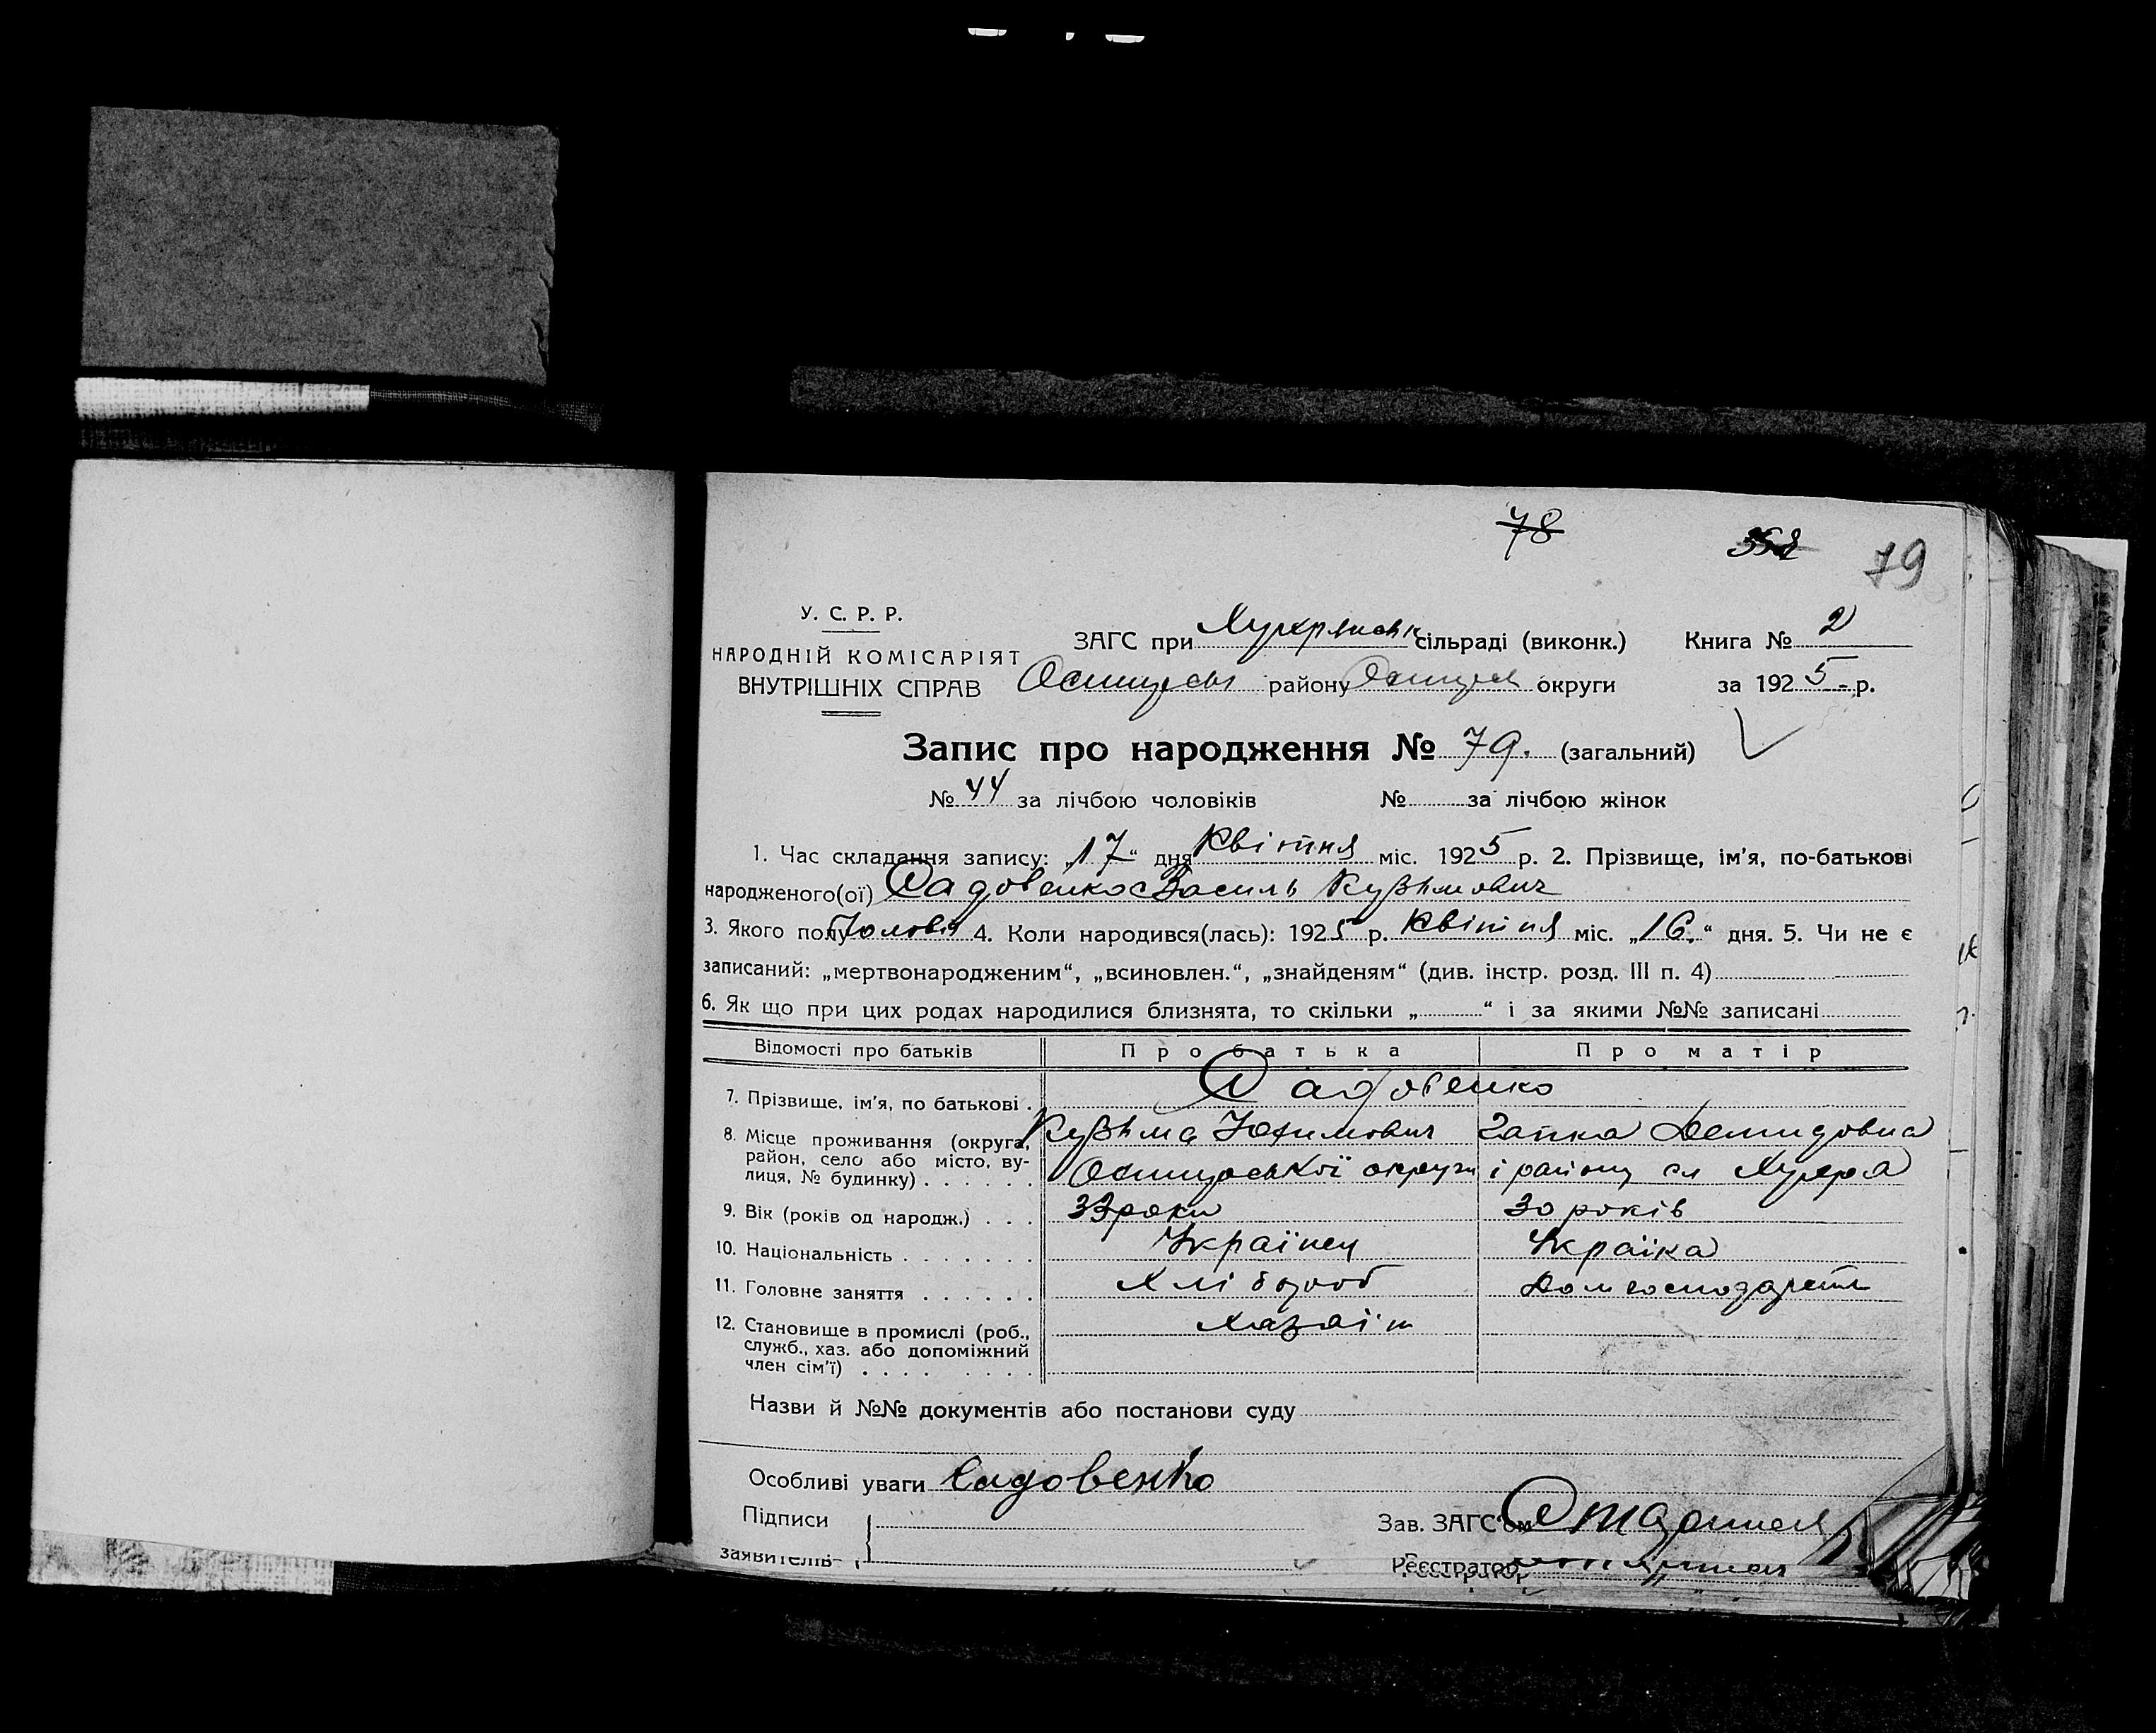 78 79
У. С. Р. Р.
НАРОДНІЙ КОМІСАРІЯТ
ВНУТРІШНІХ СПРАВ
ЗАГС при сільраді (виконк.) Книга № 2
району округи за 1925 р.
Запис про народження № 79. (загальний)
№ 44 за лічбою чоловіків № за лічбою жінок
1. Час складання запису: „17“ дня Квітня міс. 1925 р. 2. Прізвище, ім'я, по-батькові
народженого(ої) Садовенко Василь Кузьмович
3. Якого полу 4. Коли народився(лась): 1925 р. Квітня міс. „16.“ дня. 5. Чи не є
записаний: „мертвонародженим“, „всиновлен.“, „знайденям“ (див. інстр. розд. III п. 4)
6. Як що при цих родах народилися близнята, то скільки „ “ і за якими №№ записані
Відомості про батьків Про батька Про матір
7. Прізвище, ім'я, по батькові . Садовенко
8. Місце проживання (округа, Кузьма Юхимович Гапка Демидовна
район, село або місто, ву-
лиця, № будинку) . . . . . . округи і району сл
9. Вік (років од народж.) . . . 33 роки 30 років
10. Національність . . . . . . . Українец Українка
11. Головне заняття . . . . . . Хлібороб
12. Становище в промислі (роб., Хазаїн
служб., хаз. або допоміжний
член сім'ї) . . . . . . . .
Назви й №№ документів або постанови суду
Особливі уваги Садовенко
Підписи
заявителів
Зав. ЗАГС'ом
Реєстратор